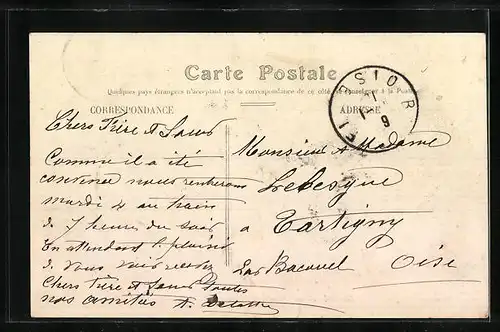 Carte Postale
Quelques pays étrangers n'acceptant pas la correspondance de ce côté, se renseigner à la Poste
CORRESPONDANCE
ADRESSE
Chers Frère et Sœur
Comme il a été
convenu nous rentrerons
mardi 4 au train
de 7 heures du soir
En attendant le plaisir
de vous voir recevez
Chers Frère et Sœur toutes
nos amitiés
Monsieur & Madame
Lebesgue
a Tartigny
par Bacouel Oise